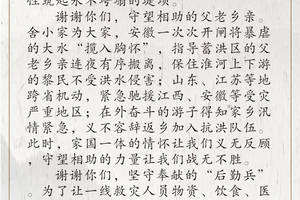 性筑起永不垮塌的堤坝。
谢谢你们，守望相助的父老乡亲。
舍小家为大家，安徽一次次开闸将暴虐
的大水“揽入胸怀”，指导蓄洪区的父
老乡亲连夜有序搬离，保住淮河上下游
的黎民不受洪水侵害；山东、江苏等地
跨省机动，紧急驰援江西、安徽等受灾
严重地区；在外奋斗的游子得知家乡汛
情紧急，义不容辞返乡加入抗洪队伍。
此时，家国一体的情怀让我们义无反顾
，守望相助的力量让我们战无不胜。
谢谢你们，坚守奉献的“后勤兵”
。为了让一线救灾人员物资、饮食、医